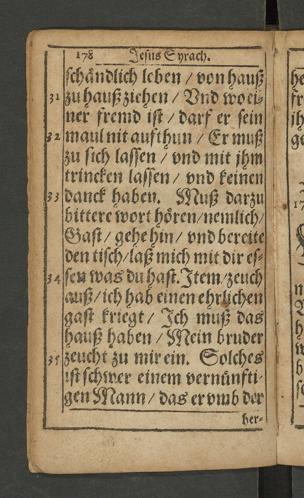 178 Jesus Syrach.
schändlich leben / von hauß
31 zu hauß ziehen / Vnd wo ei-
ner fremd ist / darf er sein
32 maul nit aufthun / Er muß
zu sich lassen / vnd mit ihm
trincken lassen / vnd keinen
33 danck haben. Muß darzu
bittere wort hören / nemlich /
Gast / gehe hin / vnd bereite
den tisch / laß mich mit dir es-
34 sen was du hast. Item / zeuch
auß / ich hab einen ehrlichen
gast kriegt / Ich muß das
hauß haben / Mein bruder
35 zeucht zu mir ein. Solches
ist schwer einem vernünfti-
gen Mann / das er vmb der
her-